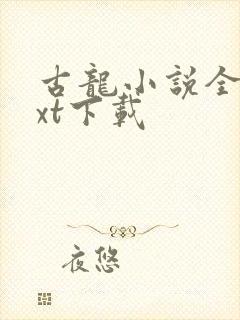 古龍小説全
xt下載
夜悠